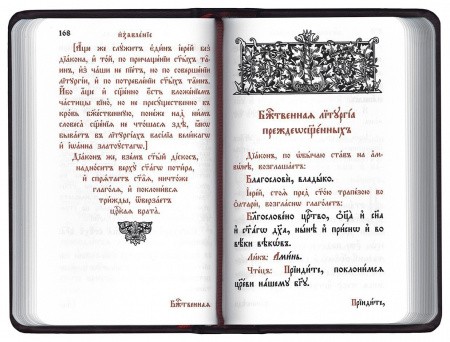 168 и҆з̾ѧвле́нїе
[А҆́ще же слꙋ́житъ є҆ди́нъ і҆ере́й без̾
дїа́кона, и҆ то́й, по причаще́нїи ст҃ы́хъ та́-
инъ, и҆з̾ ча́ши не пїе́тъ, но по соверше́нїи
лїтꙋргі́и, и҆ по потребле́нїи ст҃ы́хъ та́инъ.
И҆́бо а҆́ще и҆ сщ҃е́нно є҆́сть вложе́нїемъ
части́цы вїно̀, но не пресꙋ́щественно въ
кро́вь бж҃е́ственнꙋю, поне́же над̾ ни́мъ
словеса̀ сщ҃е́нїѧ не что́шасѧ здѣ̀, ꙗ҆́кѡ
быва́етъ въ лїтꙋргі́ахъ васі́лїа вели́кагѡ
и҆ і҆ѡа́нна златоꙋ́стагѡ.]
Дїа́конъ же, взе́мъ ст҃ы́й ді́скосъ,
надно́ситъ верхꙋ̀ ст҃а́гѡ поти́ра,
и҆ спрѧта́етъ ст҃а̑ѧ, ничто́же
глаго́лѧ, и҆ поклони́всѧ
три́жды, ѿверза́етъ
црⷭ҇каѧ врата̀.
Бж҃е́ственнаѧ
Бж҃е́ственнаѧ лїтꙋргі́а
преждеѡсщ҃е́нныхъ
Дїа́конъ, по ѻ҆бы́чаю ста́въ на а҆м-
вѡ́нѣ, возглаша́етъ:
Благословѝ, влады́ко.
І҆ере́й, стоѧ̀ пред̾ ст҃о́ю трапе́зою во
ѻ҆лтарѝ, возгла́снѡ глаго́летъ:
Блгⷭ҇ове́но црⷭ҇тво, ѻ҆ц҃а̀ и҆ сн҃а
и҆ ст҃а́гѡ дх҃а, нн҃ѣ и҆ при́снѡ и҆ во
вѣ́ки вѣкѡ́въ.
Ли́къ: А҆ми́нь.
Чте́цъ: Прїиди́те, поклони́мсѧ
цр҃е́ви на́шемꙋ бг҃ꙋ.
Прїиди́те,